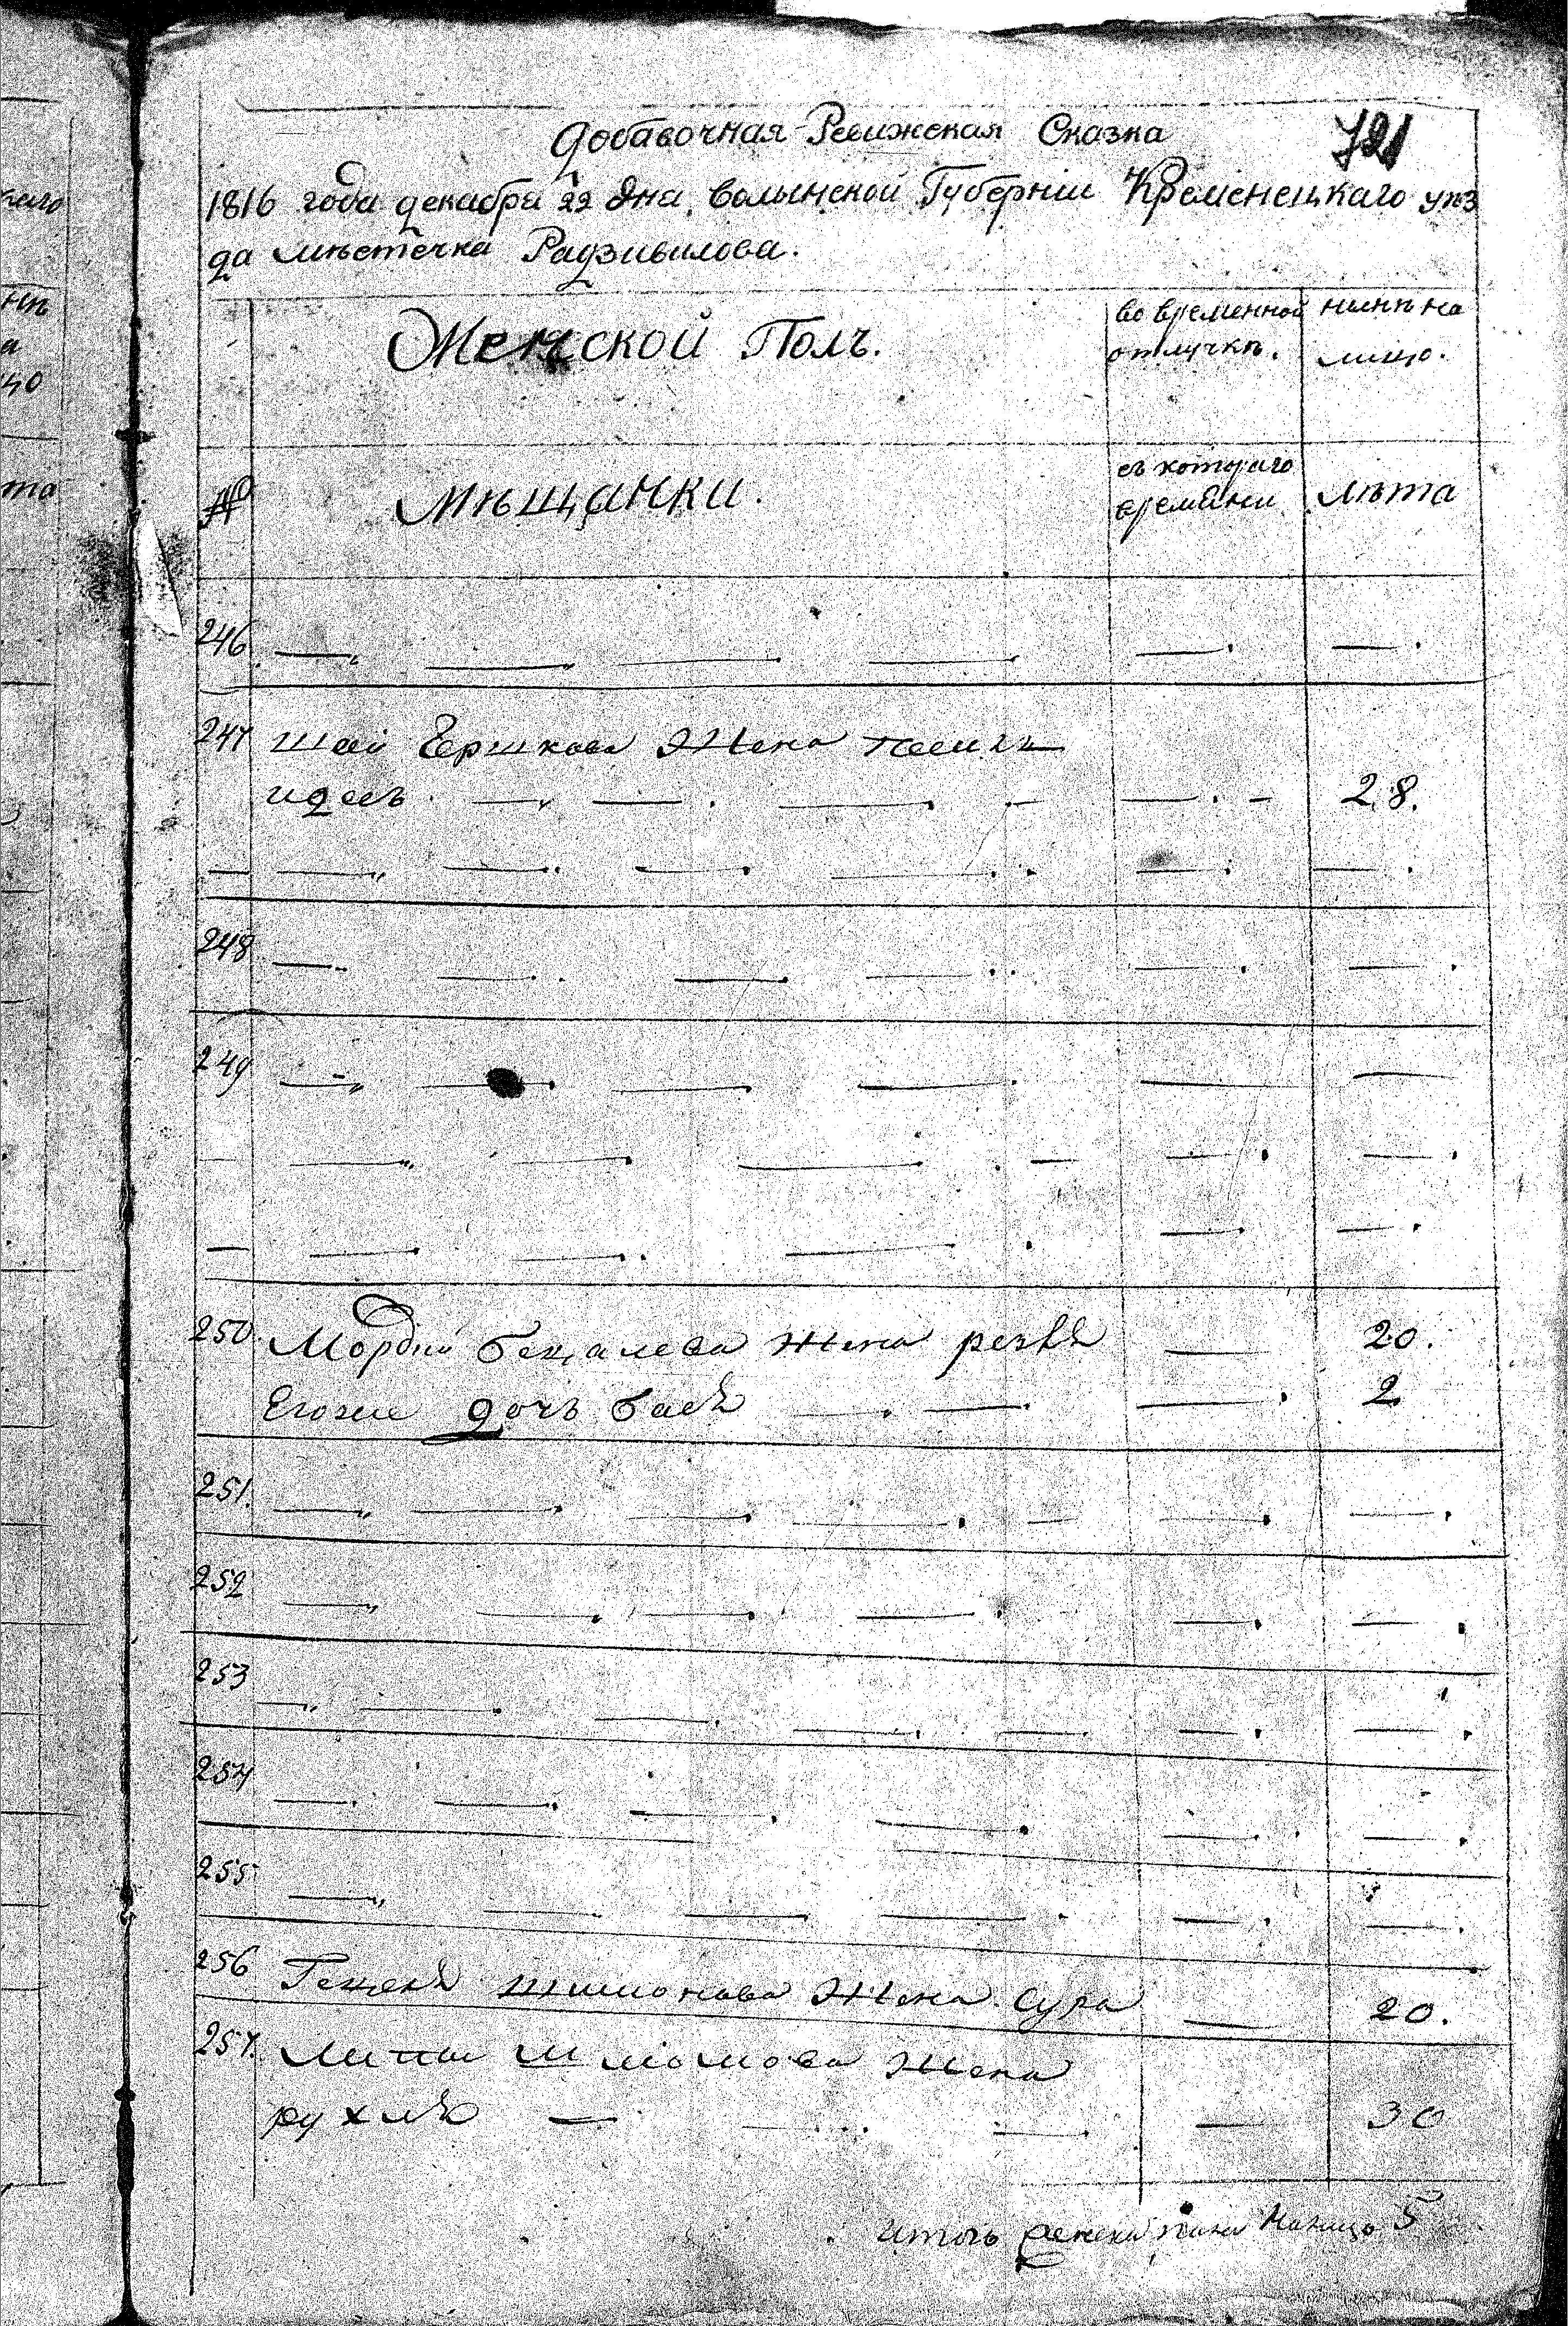 Добавочная Ревижская Сказка
721
1816 года декабря 22 дня. Волынской Губерніи Кременецкаго уѣз
да мѣстечка Радзивилова.
Женской Полъ.
во временной отлучкѣ.
нынѣ на лицо.
№
Мѣщанки.
съ котораго времѧни
Лѣта
246
247 Шаи Гершкова Жена
28.
248
249
250. Мордки Бецалева жена 20.
Егоже дочь Бася 2
251.
252
253
254
255
256 Шимонова Жена Сура 20.
257. Липы Шліомова Жена
рухля 30
Итого женска пола Налицо 5